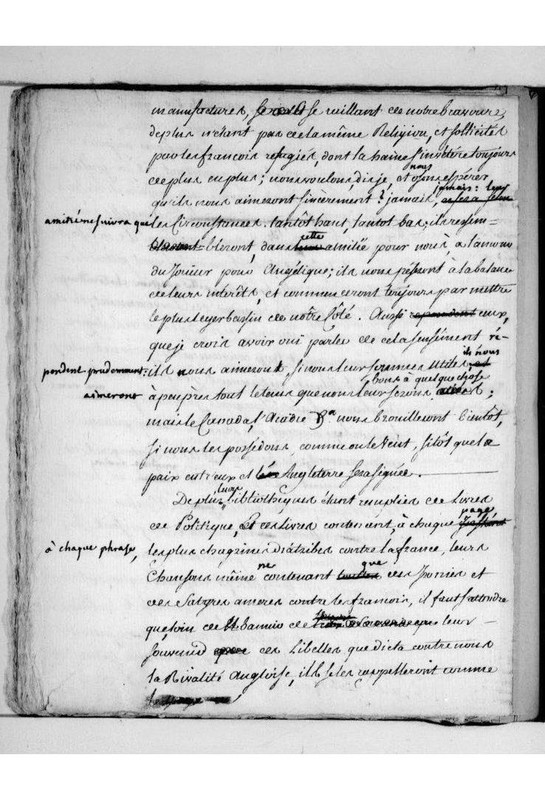 manufactures, se veillant de notre bravoure,
de plus n'étant pas de la même Religion, et sollicités
par les françois refugiés, dont la haine s'invétère toujours
de plus en plus; nous voulons, dis-je, et nous osons espérer
qu'ils nous aimeront sincèrement? jamais, jamais: leur
amitié ne suivra que les Circonstances. tantôt haut, tantôt bas; ils ressem-
bleront, dans cette amitié pour nous, à l'amour
du Jouier pour Angélique; ils nous péseront à la balance
de leurs interêts, et commenceront toujours par mettre
le plus leger bassin de nôtre Côté. Aussi ceux,
que je crois avoir oui parler de cela sensément ré-
pondent prudemment: ils nous aimeront, si nous leur sommes utiles, ils nous
aimeront à peu près tout le tems que nous leur serons bons à quelque chose;
mais le Canada, l'Acadie &a nous brouilleront bientôt,
si nous les possédons, comme on le veut, sitôt que la
paix entr'eux et Angleterre sera signée.
De plus, leurs bibliothèques étant remplies de Livres
de Politique, et ces Livres contenant, à chaque page,
à chaque phrase, les plus chagrines diatribes contre la france, leurs
Chansons même ne contenant que des Ironies et
des Satyres ameres contre les françois, il faut s'attendre
que loin de bannir de leur
souvenir ces Libelles que dicta contre nous
la Rivalité Angloise, ils se les rappelleront comme